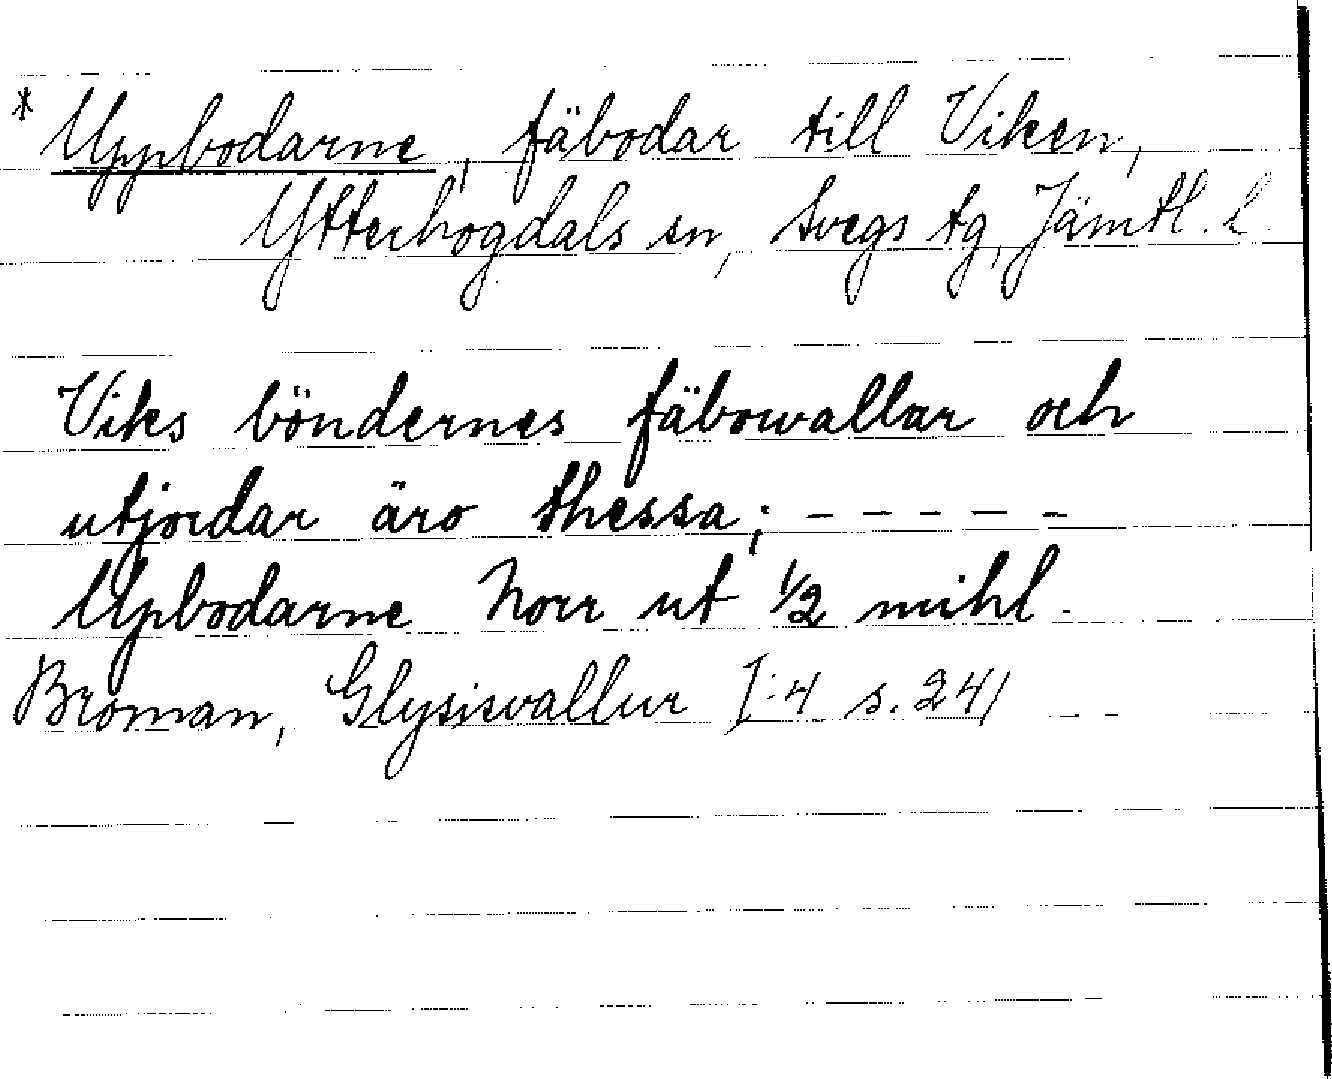 * Uppbodarne, fäbodar till Viken,
Ytterhogdals sn, Svegs tg, Jämtl. l.
Viks böndernes fäbowallar och
utjordar äro thessa; - - - - -
Upbodarne Norr ut ½ mihl.
Broman, Glysisvallur I:4 s. 241